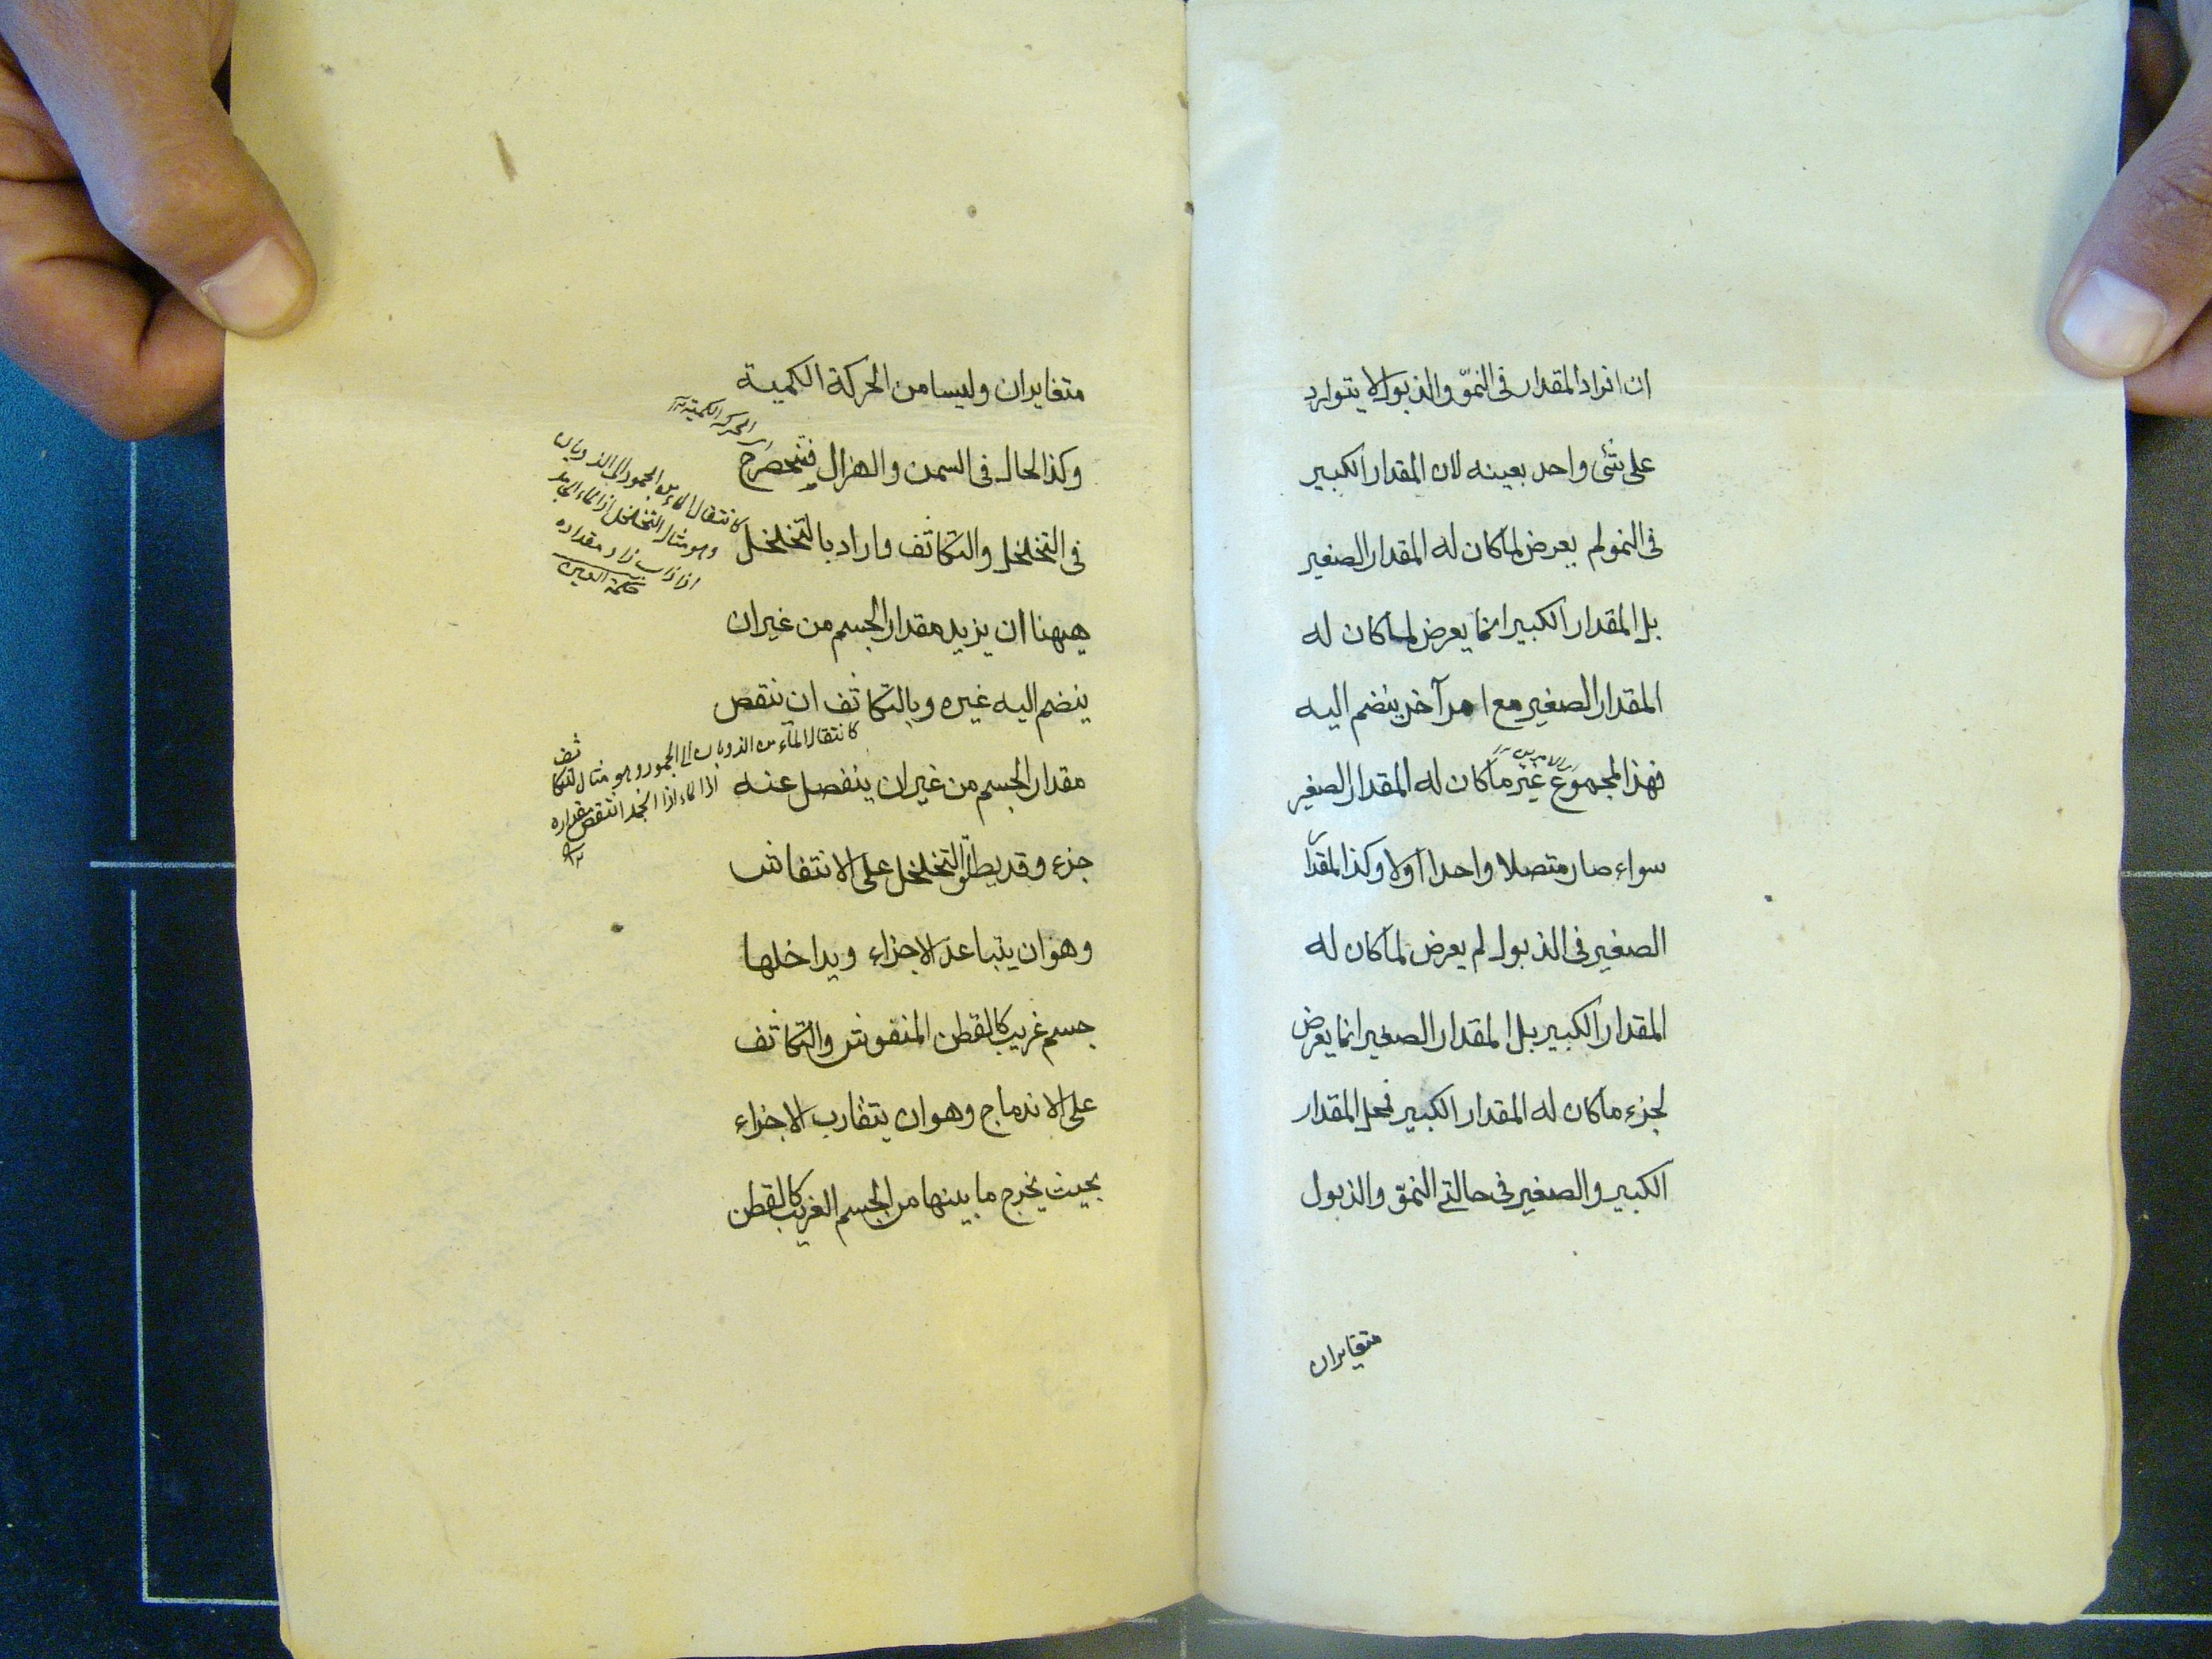 ان افراد المقدار فى النموّ والذبول لا يتوارد
على شئ واحد بعينه لان المقدار الكبير
فى النمو لم يعرض لما كان له المقدار الصغير
بل المقدار الكبير انما يعرض لما كان له
المقدار الصغير مع امر آخر ينضم اليه
فهذا المجموع غير ما كان له المقدار الصغير
سواء صار متصلا واحدا اولا وكذا المقدار
الصغير فى الذبول لم يعرض لما كان له
المقدار الكبير بل المقدار الصغير انما يعرض
لجزء ما كان له المقدار الكبير فمحل المقدار
الكبير والصغير فى حالتى النموّ والذبول
متغايران
متغايران وليسا من الحركة الكمية
اى الحركة الكمية
وكذا الحال فى السمن والهزال فتنحصر ح
كانتقال الماء من الجمود الى الذوبان
وهو مثال التخلخل اذ الماء الجامد
اذا ذاب زاد مقداره
حكمة العين
فى التخلخل والتكاثف واراد بالتخلخل
ههنا ان يزيد مقدار الجسم من غير ان
ينضم اليه غيره وبالتكاثف ان ينقص
كانتقال الماء من الذوبان الى الجمود وهو مثال التكاثف
اذ الماء اذا انجمد انتقص مقداره
١٢
مقدار الجسم من غير ان ينفصل عنه
جزء وقد يطلق التخلخل على الانتفاش
وهو ان يتباعد الاجزاء ويداخلها
جسم غريب كالقطن المنفوش والتكاثف
على الاندماج وهو ان يتقارب الاجزاء
بحيث يخرج ما بينها من الجسم الغريب كالقطن